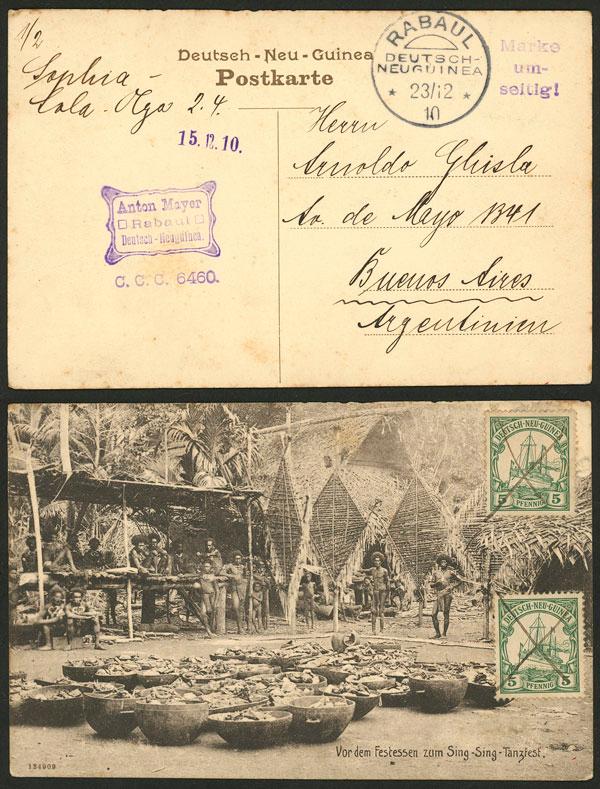 1/2
Sophia -
Lola - Olga 2. 4.
Deutsch - Neu - Guinea
Postkarte
15. 12. 10.
Anton Mayer
Rabaul
Deutsch - Neuguinea.
C. C. C. 6460.
RABAUL
DEUTSCH-
NEUGUINEA
* 23/12 *
10
Marke
um-
seitig!
Herrn
Arnoldo Ghisla
Av. de Mayo 1341
Buenos Aires
Argentinien
DEUTSCH-NEU-GUINEA
5 5
PFENNIG
DEUTSCH-NEU-GUINEA
5 5
PFENNIG
Vor dem Festessen zum Sing-Sing-Tanzfest.
134909